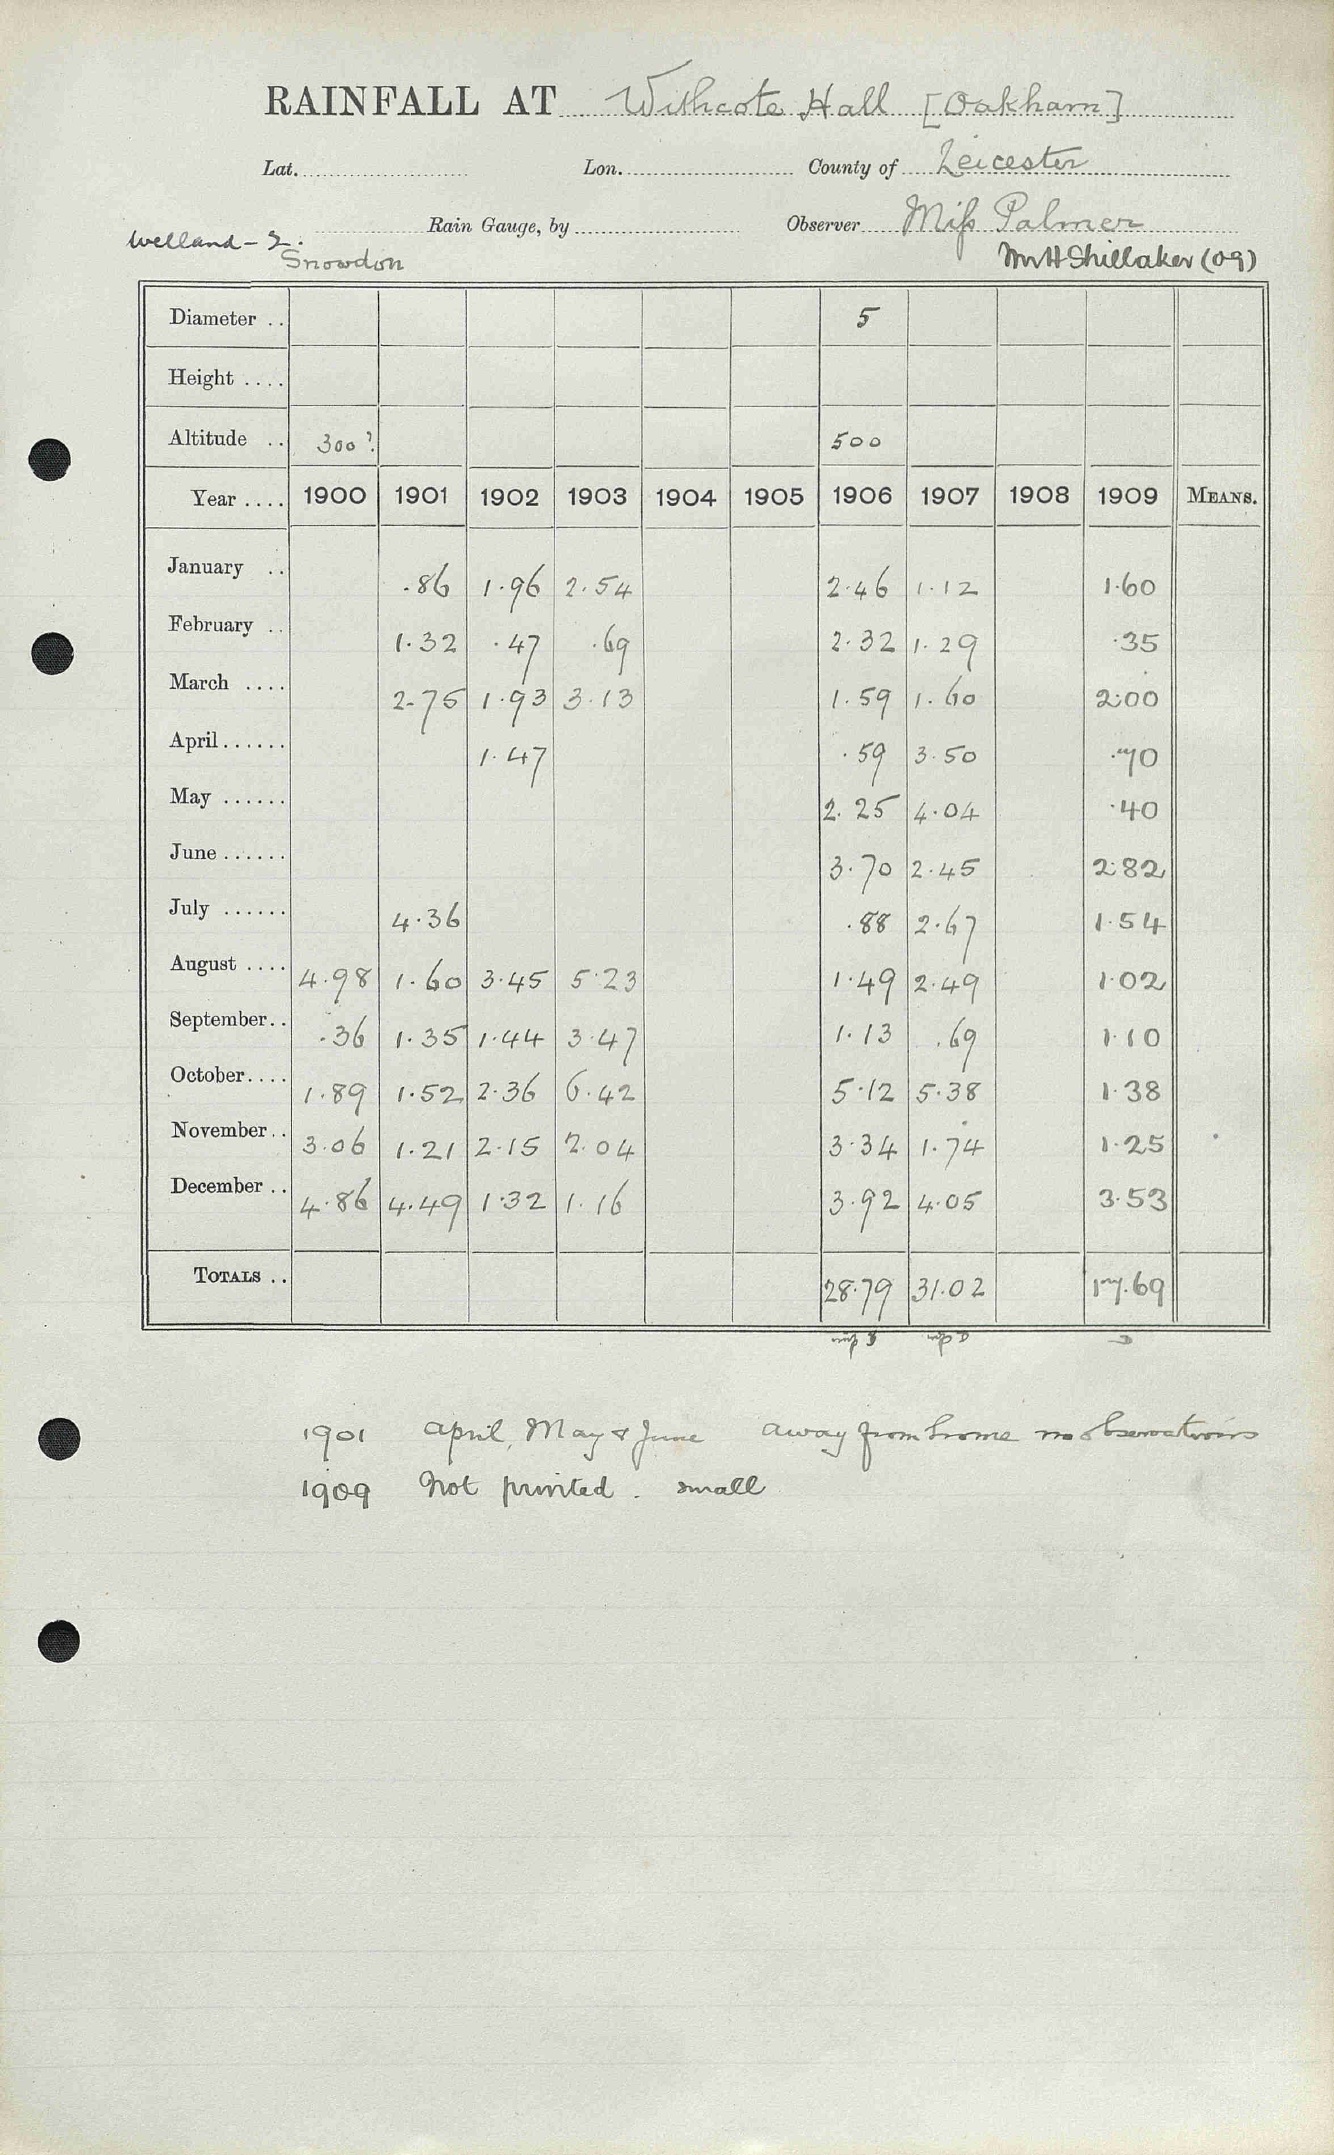 RAINFALL AT Withcote Hall [Oakham]
Lat. Lon. County of Leicester
Rain Gauge, by Observer Miss Palmer
Welland - 2. Snowdon Mr H Shillaker (09)
Diameter .. 5
Height ....
Altitude .. 300? 500
Year .... 1900 1901 1902 1903 1904 1905 1906 1907 1908 1909 MEANS.
January .. .86 1.96 2.54 2.46 1.12 1.60
February .. 1.32 .47 .69 2.32 1.29 .35
March .... 2.75 1.93 3.13 1.59 1.60 2.00
April...... 1.47 .59 3.50 .70
May ...... 2.25 4.04 .40
June ...... 3.70 2.45 2.82
July ...... 4.36 .88 2.67 1.54
August .... 4.98 1.60 3.45 5.23 1.49 2.49 1.02
September.. .36 1.35 1.44 3.47 1.13 .69 1.10
October.... 1.89 1.52 2.36 6.42 5.12 5.38 1.38
November.. 3.06 1.21 2.15 2.04 3.34 1.74 1.25
December .. 4.86 4.49 1.32 1.16 3.92 4.05 3.53
TOTALS .. 28.79 31.02 17.69
1901 April, May & June away from home no observations
1909 Not printed. small